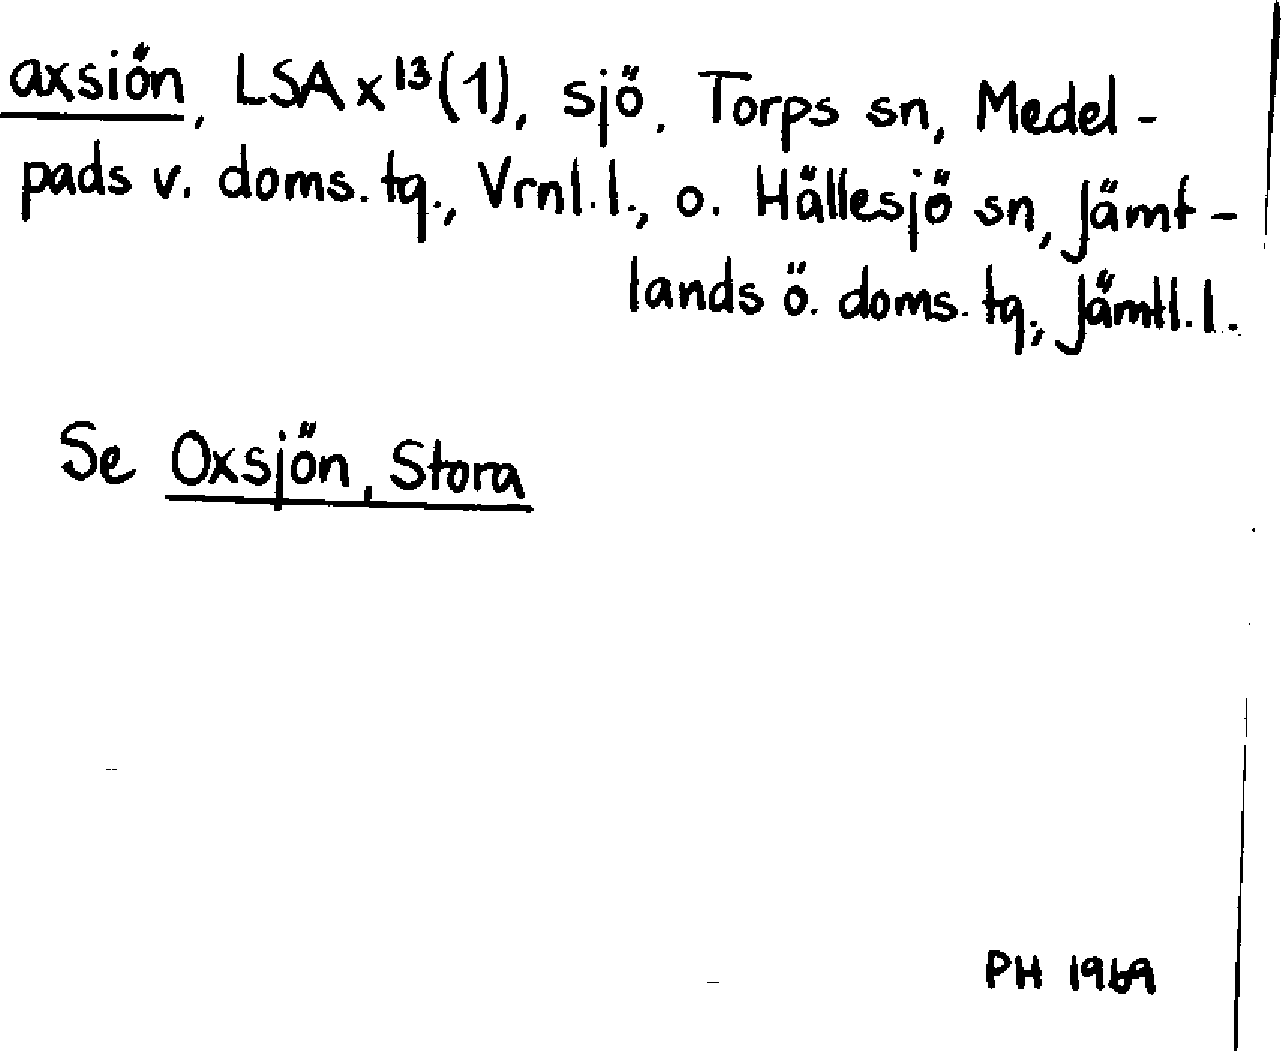 axsiön, LSA x¹³(1), sjö, Torps sn, Medel-
pads v. doms. tq., Vrnl. l., o. Hällesjö sn, Jämt-
lands ö. doms. tq., Jämtl. l.
Se Oxsjön, Stora
PH 1969